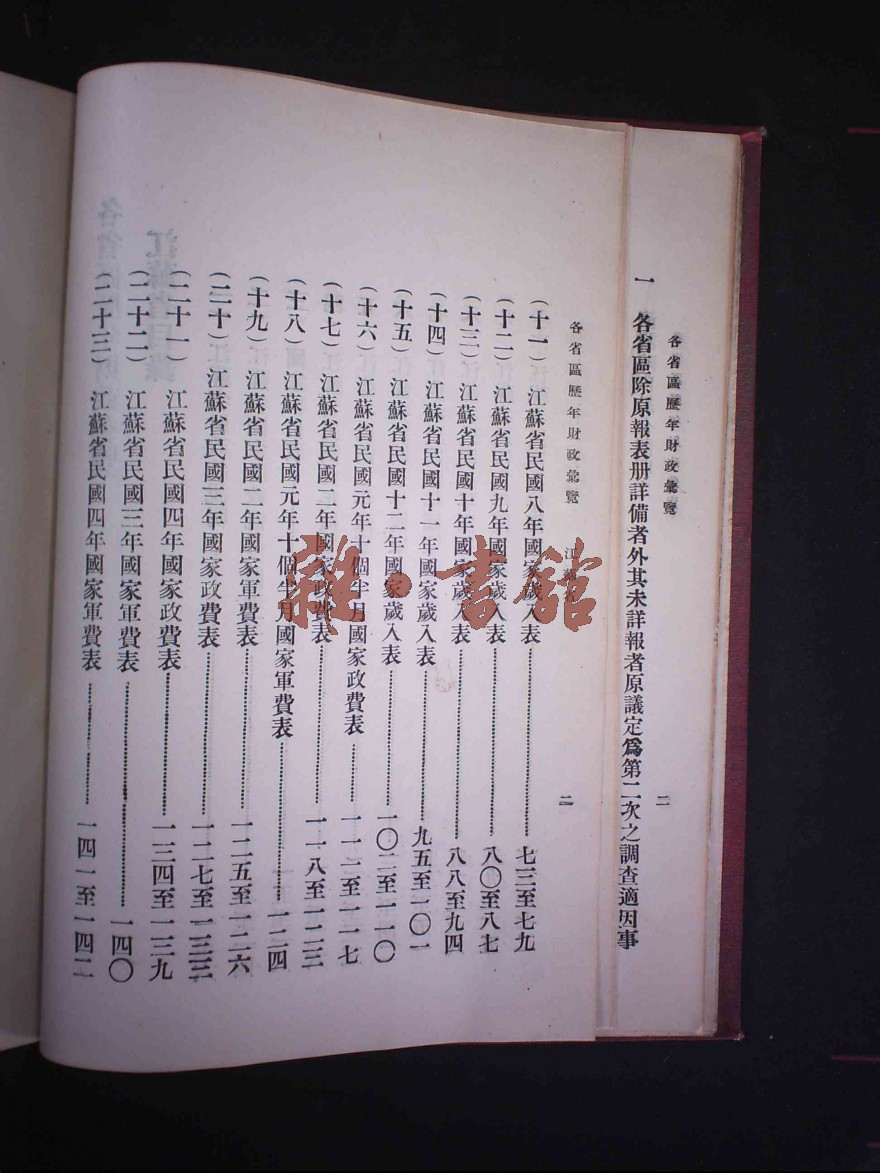 各省區歷年財政彙覽
二
一 各省區除原報表册詳備者外其未詳報者原議定爲第二次之調查適因事
各省區歷年財政彙覽 江蘇
二
(十一) 江蘇省民國八年國家歲入表 七三至七九
(十二) 江蘇省民國九年國家歲入表 八〇至八七
(十三) 江蘇省民國十年國家歲入表 八八至九四
(十四) 江蘇省民國十一年國家歲入表 九五至一〇一
(十五) 江蘇省民國十二年國家歲入表 一〇二至一一〇
(十六) 江蘇省民國元年十個半月國家政費表 一一二至一一七
(十七) 江蘇省民國二年國家政費表 一一八至一二三
(十八) 江蘇省民國元年十個半月國家軍費表 一二四
(十九) 江蘇省民國二年國家軍費表 一二五至一二六
(二十) 江蘇省民國三年國家政費表 一二七至一三三
(二十一) 江蘇省民國四年國家政費表 一三四至一三九
(二十二) 江蘇省民國三年國家軍費表 一四〇
(二十三) 江蘇省民國四年國家軍費表 一四一至一四二
雜·書館